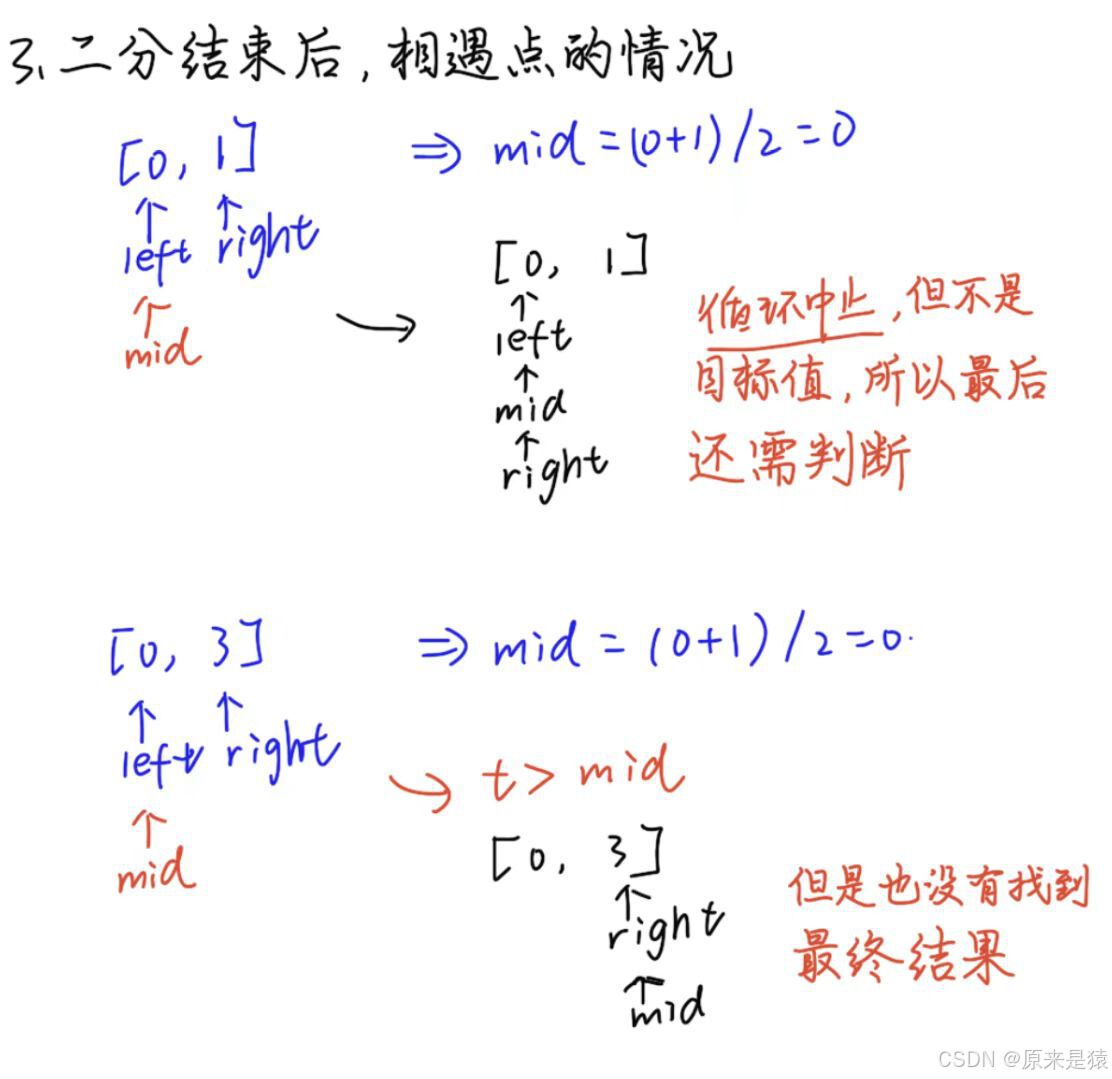 3、二分结束后,相遇点的情况
[0, 1] ⇒ mid=(0+1)/2=0
↑ ↑
left right
↑
mid
→
[0, 1]
↑
left
↑
mid
↑
right
循环中止,但不是
目标值,所以最后
还需判断
[0, 3] ⇒ mid=(0+1)/2=0.
↑ ↑
left right
↑
mid
→ t> mid
[0, 3]
↑
right
↑
mid
但是也没有找到
最终结果
CSDN @原来是猿